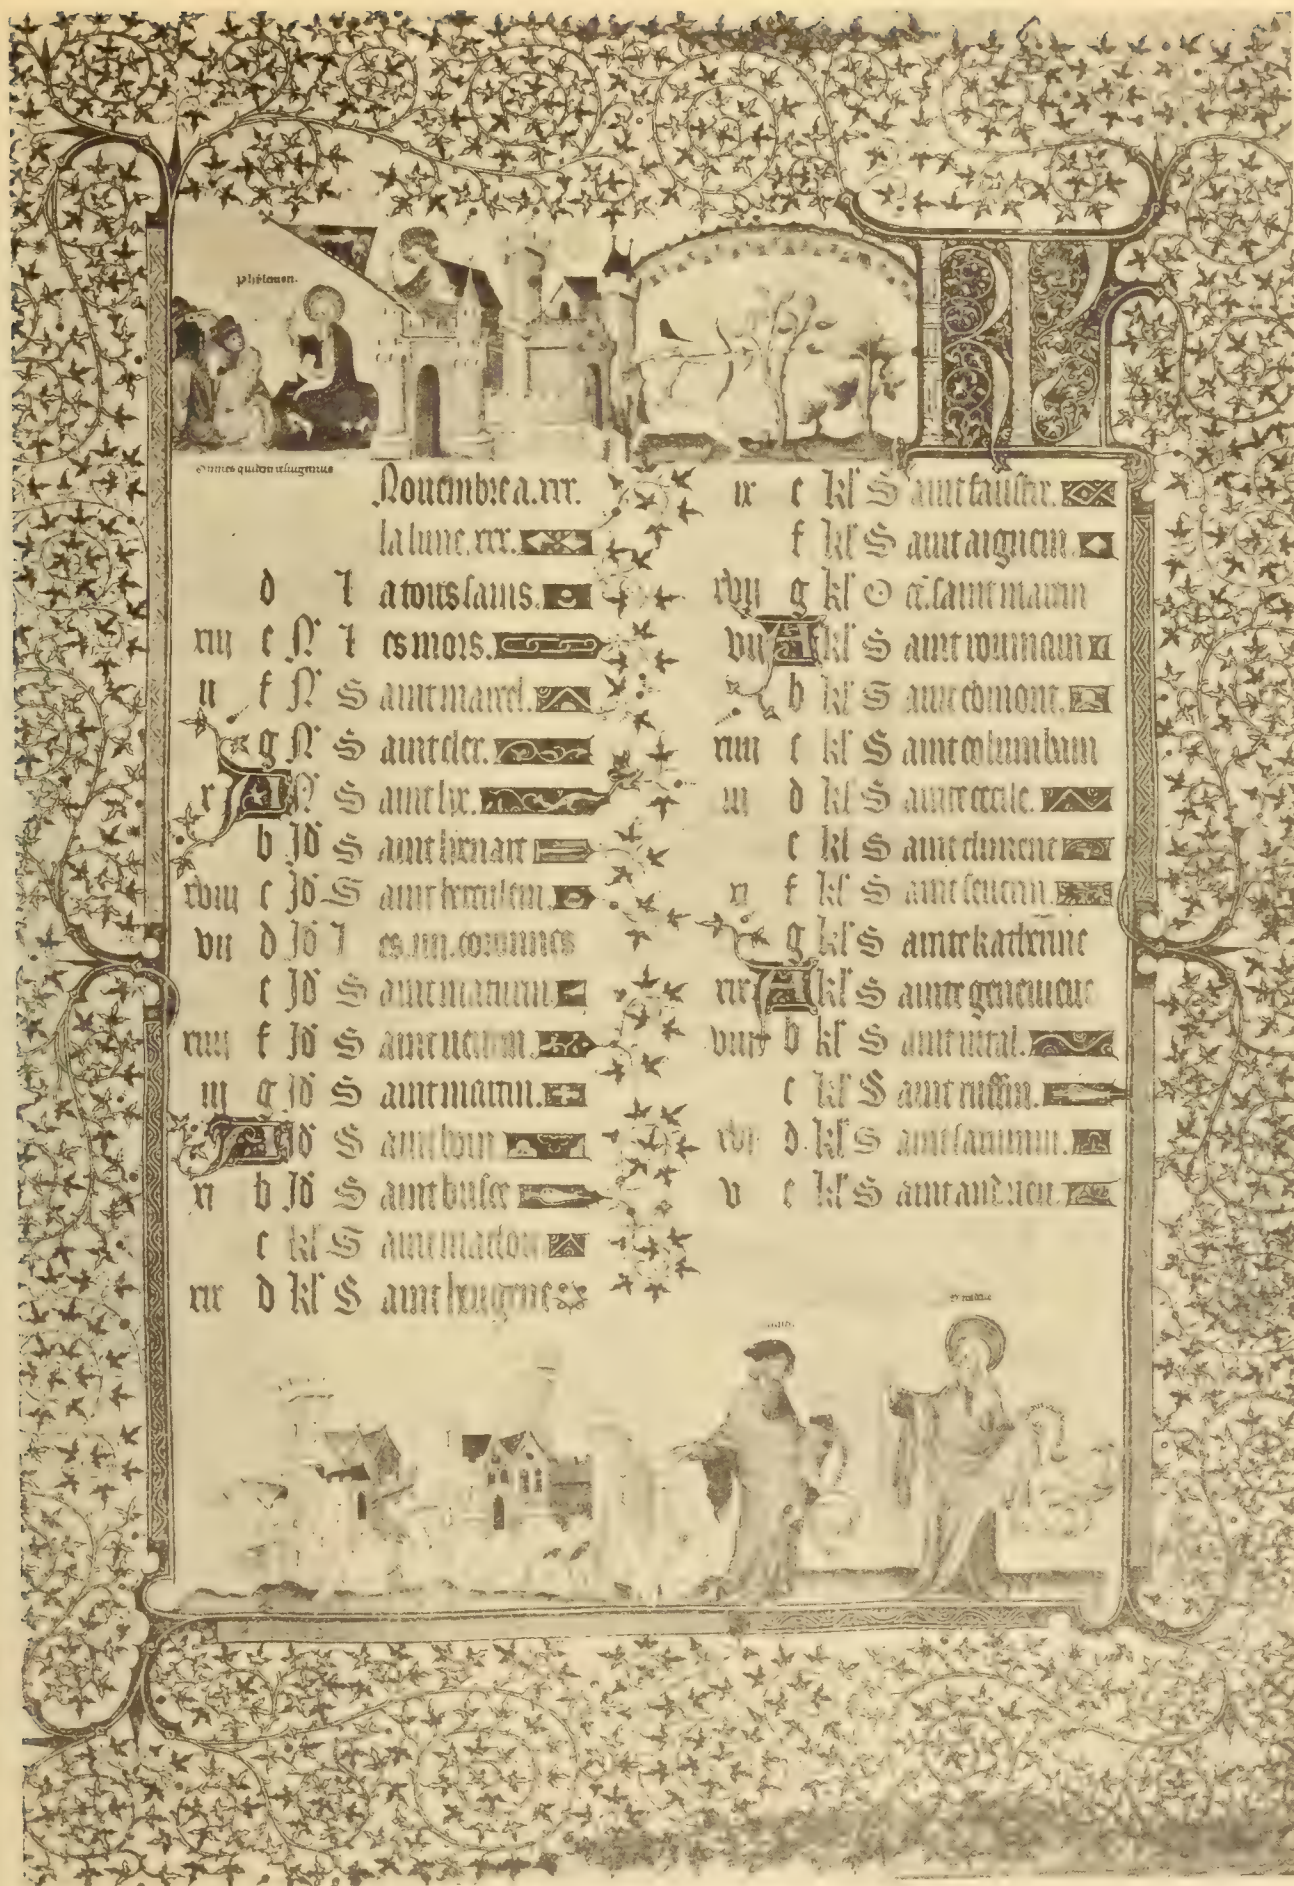 philemon.
Omnes quidem resurgemus
KL
Nouembre a. xxx.
la lune. xxx.
d l a tous sains.
xiii e N l es mors.
ii f N S aint marcel.
g N S aint cler.
x A N S aint lie.
b Id S aint lienart
xviii c Id S aint herculein.
vii d Id l es .iiii. coronnes
e Id S aint maturin
xiiii f Id S aint
iii g Id S aint martin.
A Id S aint
xi b Id S aint
c kl S aint maclou
xix d kl S aint eugene
ix e kl S aint
f kl S aint aignein.
xvii g kl O ct. saint martin
vii A kl S aint roumain
b kl S aint edmont.
xiiii c kl S aint columbain
iii d kl S ainte cecile.
e kl S aint climent
xi f kl S aint seuerin.
g kl S ainte katherine
xix A kl S ainte geneuieue
viii b kl S aint vital.
c kl S aint ruffin.
xvi d kl S aint saturnin.
v e kl S aint andrieu.